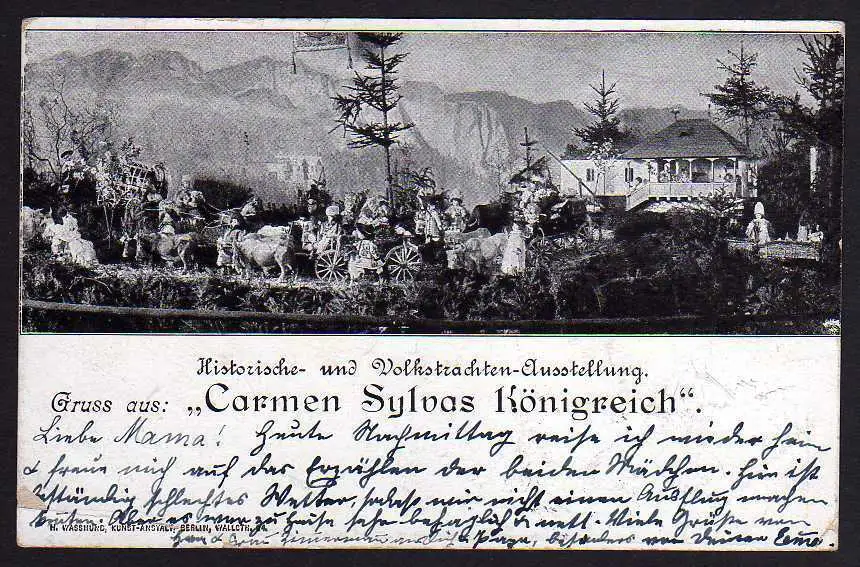 Historische- und Volkstrachten-Ausstellung.
Gruss aus: „Carmen Sylvas Königreich“.
Liebe Mama! Heute Nachmittag reise ich wieder heim
& freue mich auf das Erzählen der beiden Mädchen. Hier ist
beständig schlechtes Wetter, sodass wir nicht einen Ausflug machen
konnten. Aber es war zu Hause sehr behaglich & nett. Viele Grüße von
H. WASSMUND, KUNST-ANSTALT, BERLIN, WALLSTR.
& Papa, besonders von Deiner